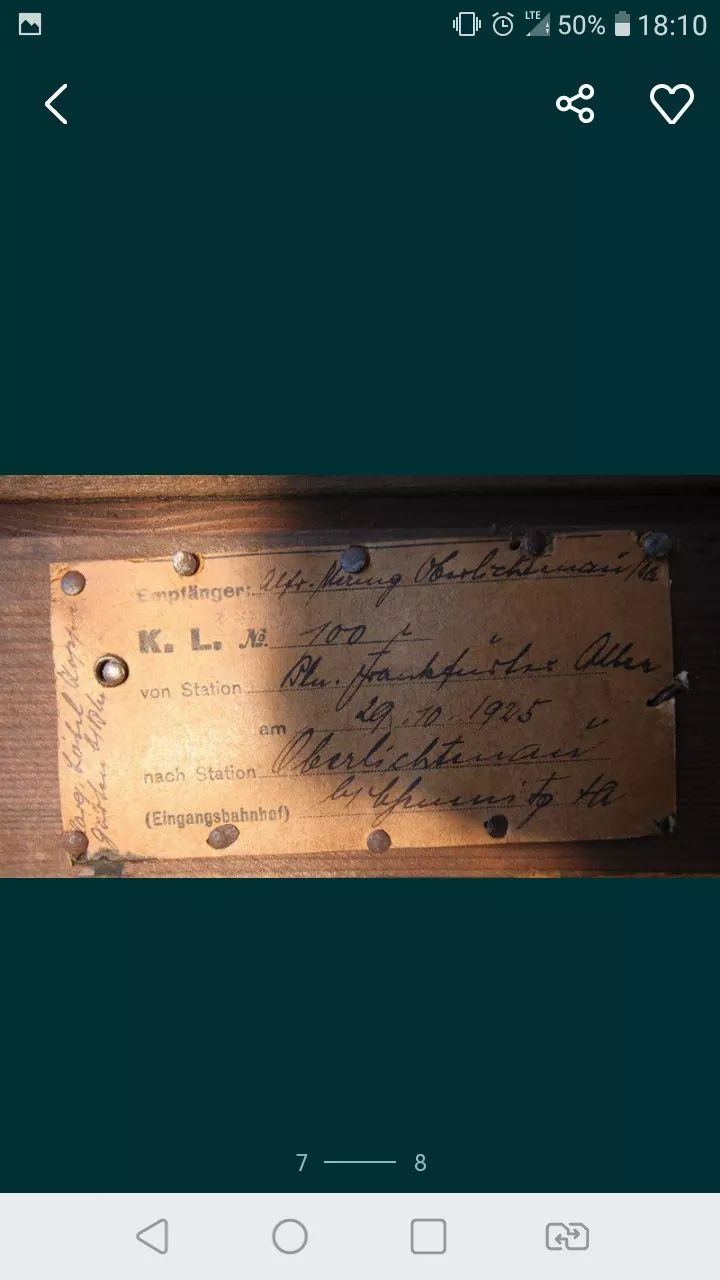 LTE 50% 18:10
Empfänger: Alfr. Oberlichtenau
K. L. №. 100
von Station Bln. Frankfurter Allee
am 29.10.1925
nach Station Oberlichtenau
(Eingangsbahnhof) b/ Chemnitz
7 8